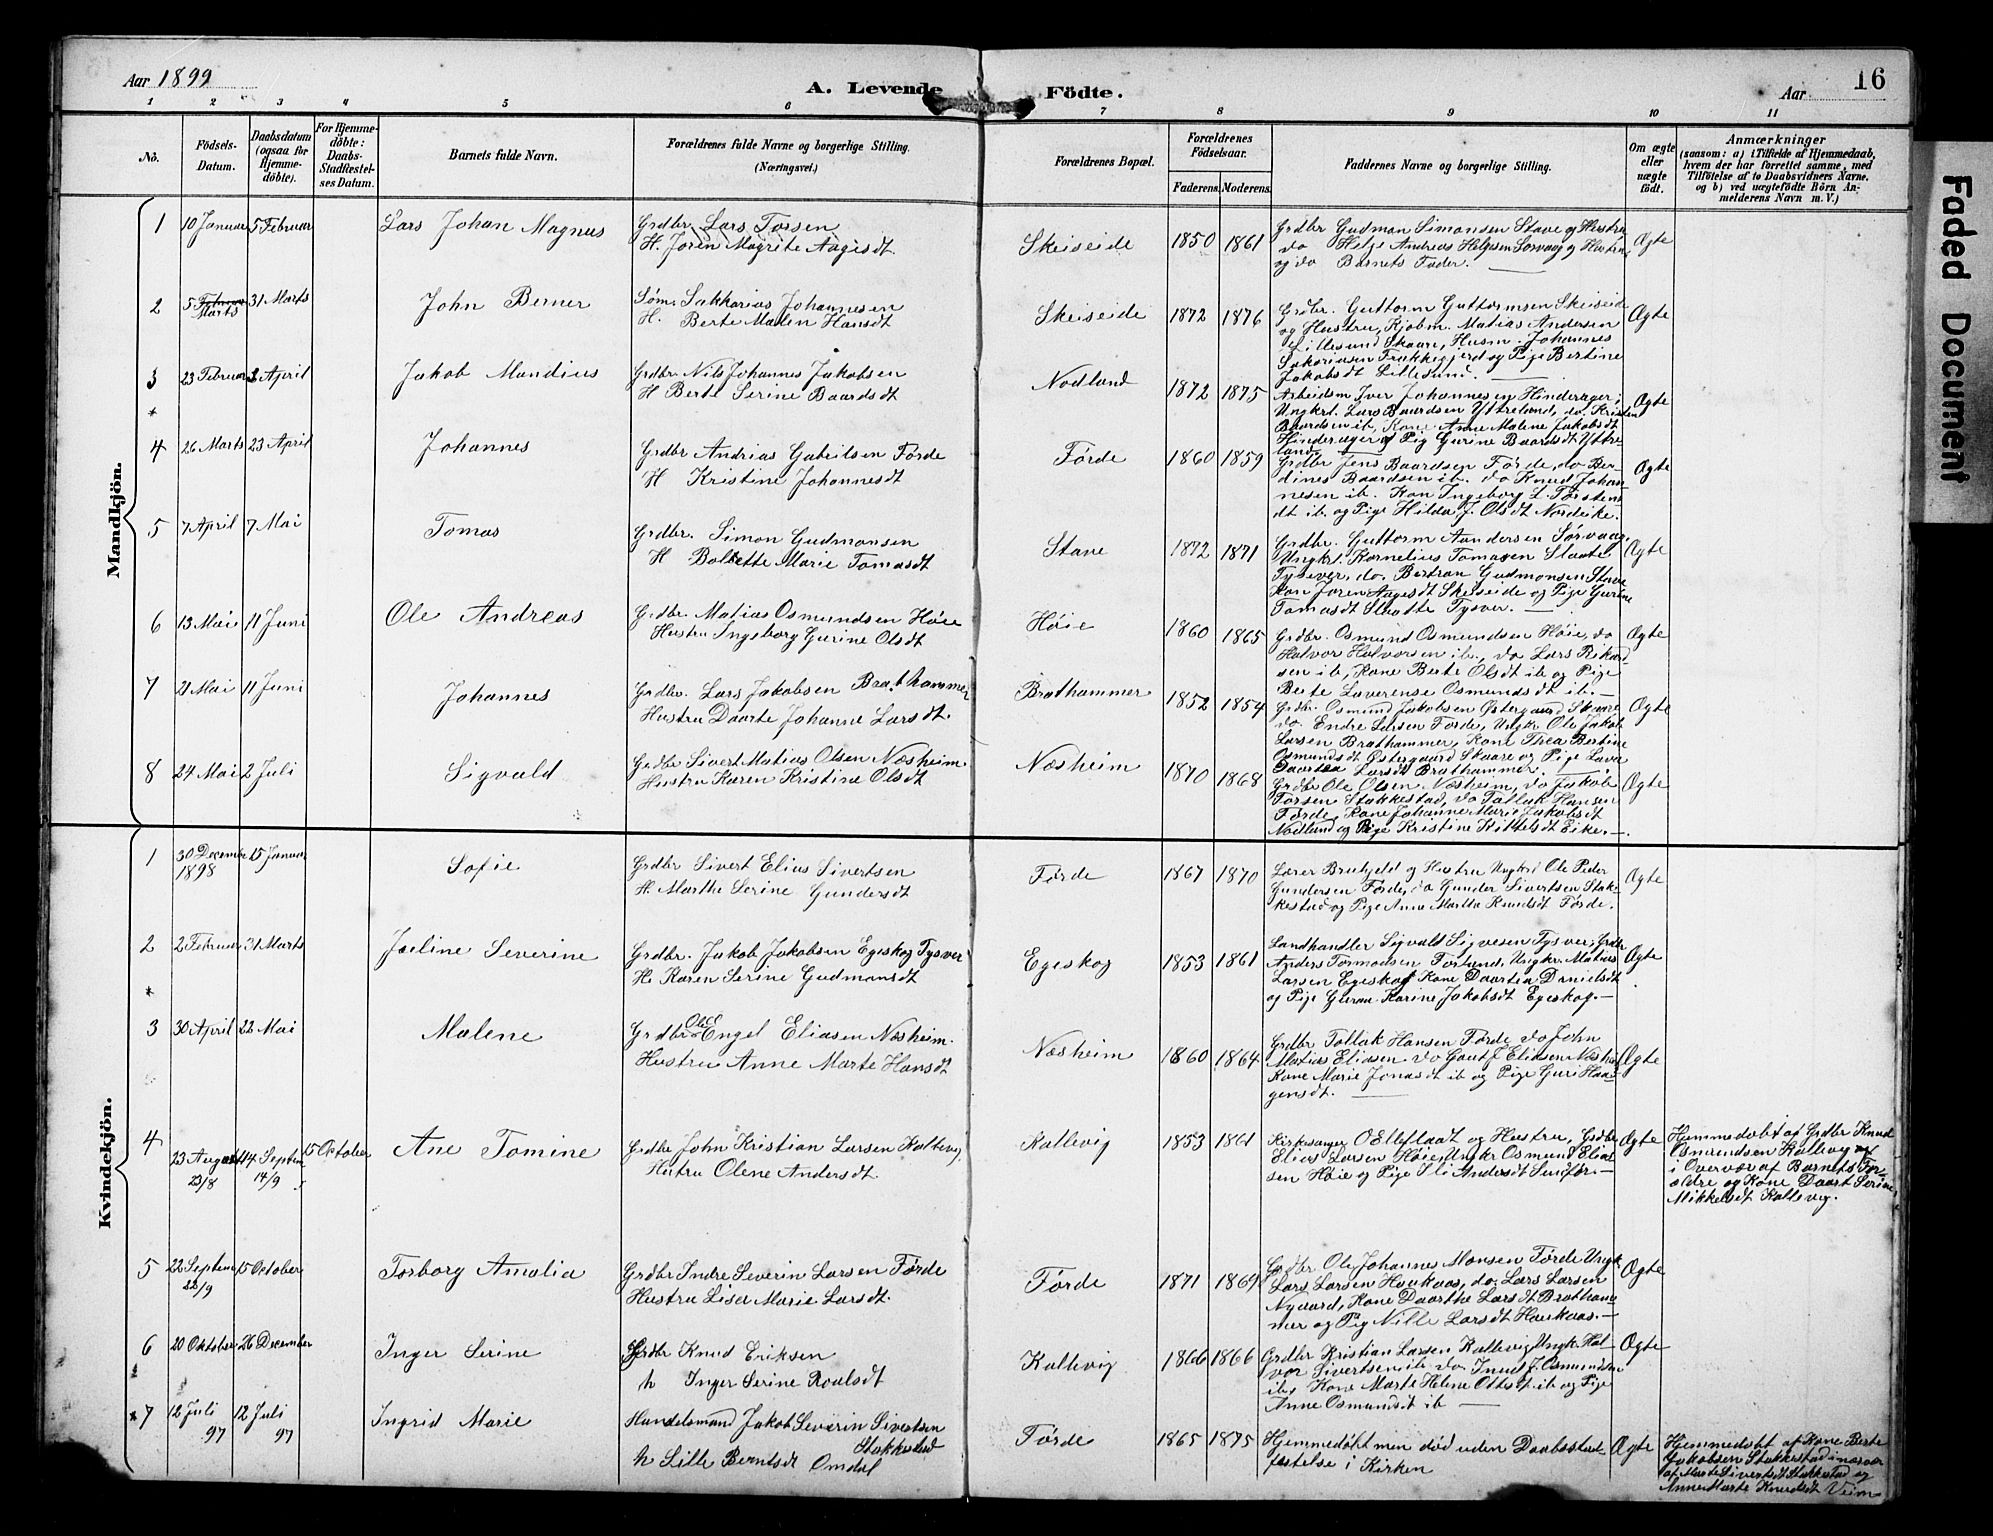 Aar 1899
A. Levende
Födte.
Aar
16
1 2 3 4 5 6 7 8 9 10 11
No.
Födsels-
Datum.
Daabsdatum
(ogsaa for
Hjemme-
döbte).
For Hjemme-
döbte:
Daabs-
Stadfæstel-
ses Datum.
Barnets fulde Navn.
Forældrenes fulde Navne og borgerlige Stilling.
(Næringsvei.)
Forældrenes Bopæl.
Forældrenes
Födselsaar.
Faderens. Moderens.
Faddernes Navne og borgerlige Stilling.
Om ægte
eller
uægte
födt.
Anmærkninger
(saasom: a) i Tilfælde af Hjemmedaab,
hvem der har forrettet samme, med
Tilföielse af to Daabsvidners Navne,
og b) ved uægtefödte Börn An-
melderens Navn m. V.)
Faded Document
Mandkjön.
1 10 Januar 5 Februar Lars Johan Magnus
Grdbr Lars Torsen
H. Joren Magrite Aagesdt.
Skeiseide 1850 1861
Grdbr Gudman Simonsen Stave og Hustru
do Helge Andreas Helgesen Sørvaag og Hustru
og do Barnets Fader.
Ægte
2 5 Februar Marts 31 Marts John Berner
Søm. Sakkarias Johannesen
H. Berte Malen Hansdt
Skeiseide 1872 1876
Grdbr. Guttorm Guttormsen Skeiseide
og Hustru, Kjøbm. Matias Andersen
Lillesund Skaare, Husm. Johannes
Sakariasen Frakkegjerd og Pige Bertine
Jakobsdt Lillesund.
Ægte
3 23 Februar 3 April Jakob Mandius
Grdbr Nils Johannes Jakobsen
H Berte Serine Baardsdt
Nodland 1872 1875
Arbeidsm Iver Johannesen Hinderager,
Ungkrl. Lars Baardsen Yttreland, do. Kristen
Baardsen ib, Kone Anne Malene Jakobsdt
Hinderager og Pig Gurine Baardsdt Yttre
land
Ægte
4 26 Marts 23 April Johannes
Grdbr Andrias Gabrilsen Førde
H Kristine Johannesdt
Førde 1860 1859
Grdbr Jens Baardsen Førde, do Ber-
dines Baardsen ib. do Knud Johan-
nesen ib. Kon Ingeborg L. Torstens
dt ib. og Pige Hilda J. Olsdt Nordeike.
Ægte
5 7 April 7 Mai Tomas
Grdbr. Simon Gudmansen
H Bolette Marie Tomasdt
Stave 1872 1871
Grdbr. Guttorm Aandersen Sørvaag,
Ungkrl. Kornelius Tomasen Slaatte
Tysever, do. Bertran Gudmonsen Stave
Kon Joren Aagesdt Skeiseide og Pige Gurine
Tomasdt Slaatte Tysver.
Ægte
6 13 Mai 11 Juni Ole Andreas
Grdbr. Matias Osmundsen Høie
Hustru Ingeborg Gurine Olsdt
Høie 1860 1865
Grdbr. Osmund Osmundsen Høie, do
Halvor Halvorsen ib., do Lars Rikard-
sen ib, Kone Berte Olsdt ib og Pige
Berte Laverense Osmundsdt ib.
Ægte
7 21 Mai 11 Juni Johannes
Grdbr. Lars Jakobsen Brathammer
Hustru Daarte Johanne Larsdt.
Brathammer 1852 1854
Grdbr. Osmund Jakobsen Østergaard Skaare
do. Endre Larsen Førde, Ungkr Ole Jakob
Larsen Brathammer, Kone Thea Bertine
Osmundsdt Østergaard Skaare og Pige Lava
Daartea Larsdt Brathammer.
Ægte
8 24 Mai 2 Juli Sigvald
Grdbr Sivert Matias Olsen Næsheim
Hustru Karen Kristine Olsdt
Næsheim 1870 1868
Grdbr Ole Olsen Næsheim, do Jakob
Torsen Stakkestad, do Tallak Hansen
Førde, Kone Johanne Marie Jakobsdt
Nodland og Pige Kristine Kittelsdt Eike.
Ægte
Kvindekjön.
1 30 December 1898 15 Januar Sofie
Grdbr Sivert Elias Sivertsen
H. Marthe Serine Gundersdt
Førde 1867 1870
Lærer Brekjeld og Hustru Ungkrl Ole Peder
Gundersen Førde, do Gunder Sivertsen Stak-
kestad og Pige Anne Martha Knudsdt Førde.
Ægte
2 2 Februar 31 Marts Joeline Severine
Grdbr. Jakob Jakobsen Egeskog Tysver
H. Karen Serine Gudmansdt
Egeskog 1853 1861
Landhandler Sigvald Sigvesen Tysver, Grdbr
Anders Tormodsen Førlund, Ungkr. Matias
Larsen Egeskog Kone Daartia Danielsdt
og Pige Guran Karine Jakobsdt Egeskog.
Ægte
3 30 April 22 Mai Malene
Grdbr Ole Engel Eliasen Næsheim.
Hustru Anne Marte Hansdt
Næsheim 1860 1864
Grdbr Tollak Hansen Førde do John
Matias Eliasen do Gaut J Eliasen Næsheim
Kone Marie Jonasdt ib og Pige Guri Haa-
gensdt.
Ægte
4 23 August 23/8 14 Septem 14/9 15 October Ane Tomine
Grdbr John Kristian Larsen Kallevig.
Hustru Olene Andersdt.
Kallevig 1853 1861
Kirkesanger O Elleflaadt og Hustru, Grdbr
Elias Larsen Høie, Ungkr Osmund Elias-
sen Høie og Pige Sli Andersdt
Ægte
Hjemmedøbt af Grdbr Knud
Osmundsen Kallevig
i Overvær af Barnets For-
ældre og Kone Daart Serine
Mikkelsdt Kallevig.
5 22 Septem 22/9 15 October Torborg Amalia
Grdbr Indre Severin Larsen Førde
Hustru Lisa Marie Larsdt.
Førde 1871 1869
Grdbr Ole Johannes Monsen Førde Ungk
Lars Larsen Haukaas, do. Lars Larsen
Nygaard, Kone Daarthe Larsdt Brotham-
mer og Pig Nille Larsdt Haukaas.
Ægte
6 20 Oktober 26 December Inger Serine
Grdbr Knud Eriksen
h Inger Serine Roalsdt
Kallevig 1866 1866
Grdbr Kristian Larsen Kallevig Ungk. Hal-
vor Sivertsen ib do Knud J. Osmundsen
ib, Kone Marte Helene Ottsdt ib og Pige
Anne Osmundsdt ib
Ægte
7 12 Juli 97 12 Juli 97 Ingrid Marie
Handelsmand Jakob Severin Sivertsen
Stakkestad
h Sille Berntsdt Omdal
Førde 1865 1875
Hjemmedøbt men død uden Daabsstad-
festelse i Kirken
Ægte
Hjemmedøbt af Kone Berte
Jakobsen Stakkestad i nærvær
af Marte Sivertsdt Stakkestad og
Anne Marte Knudsdt Veim